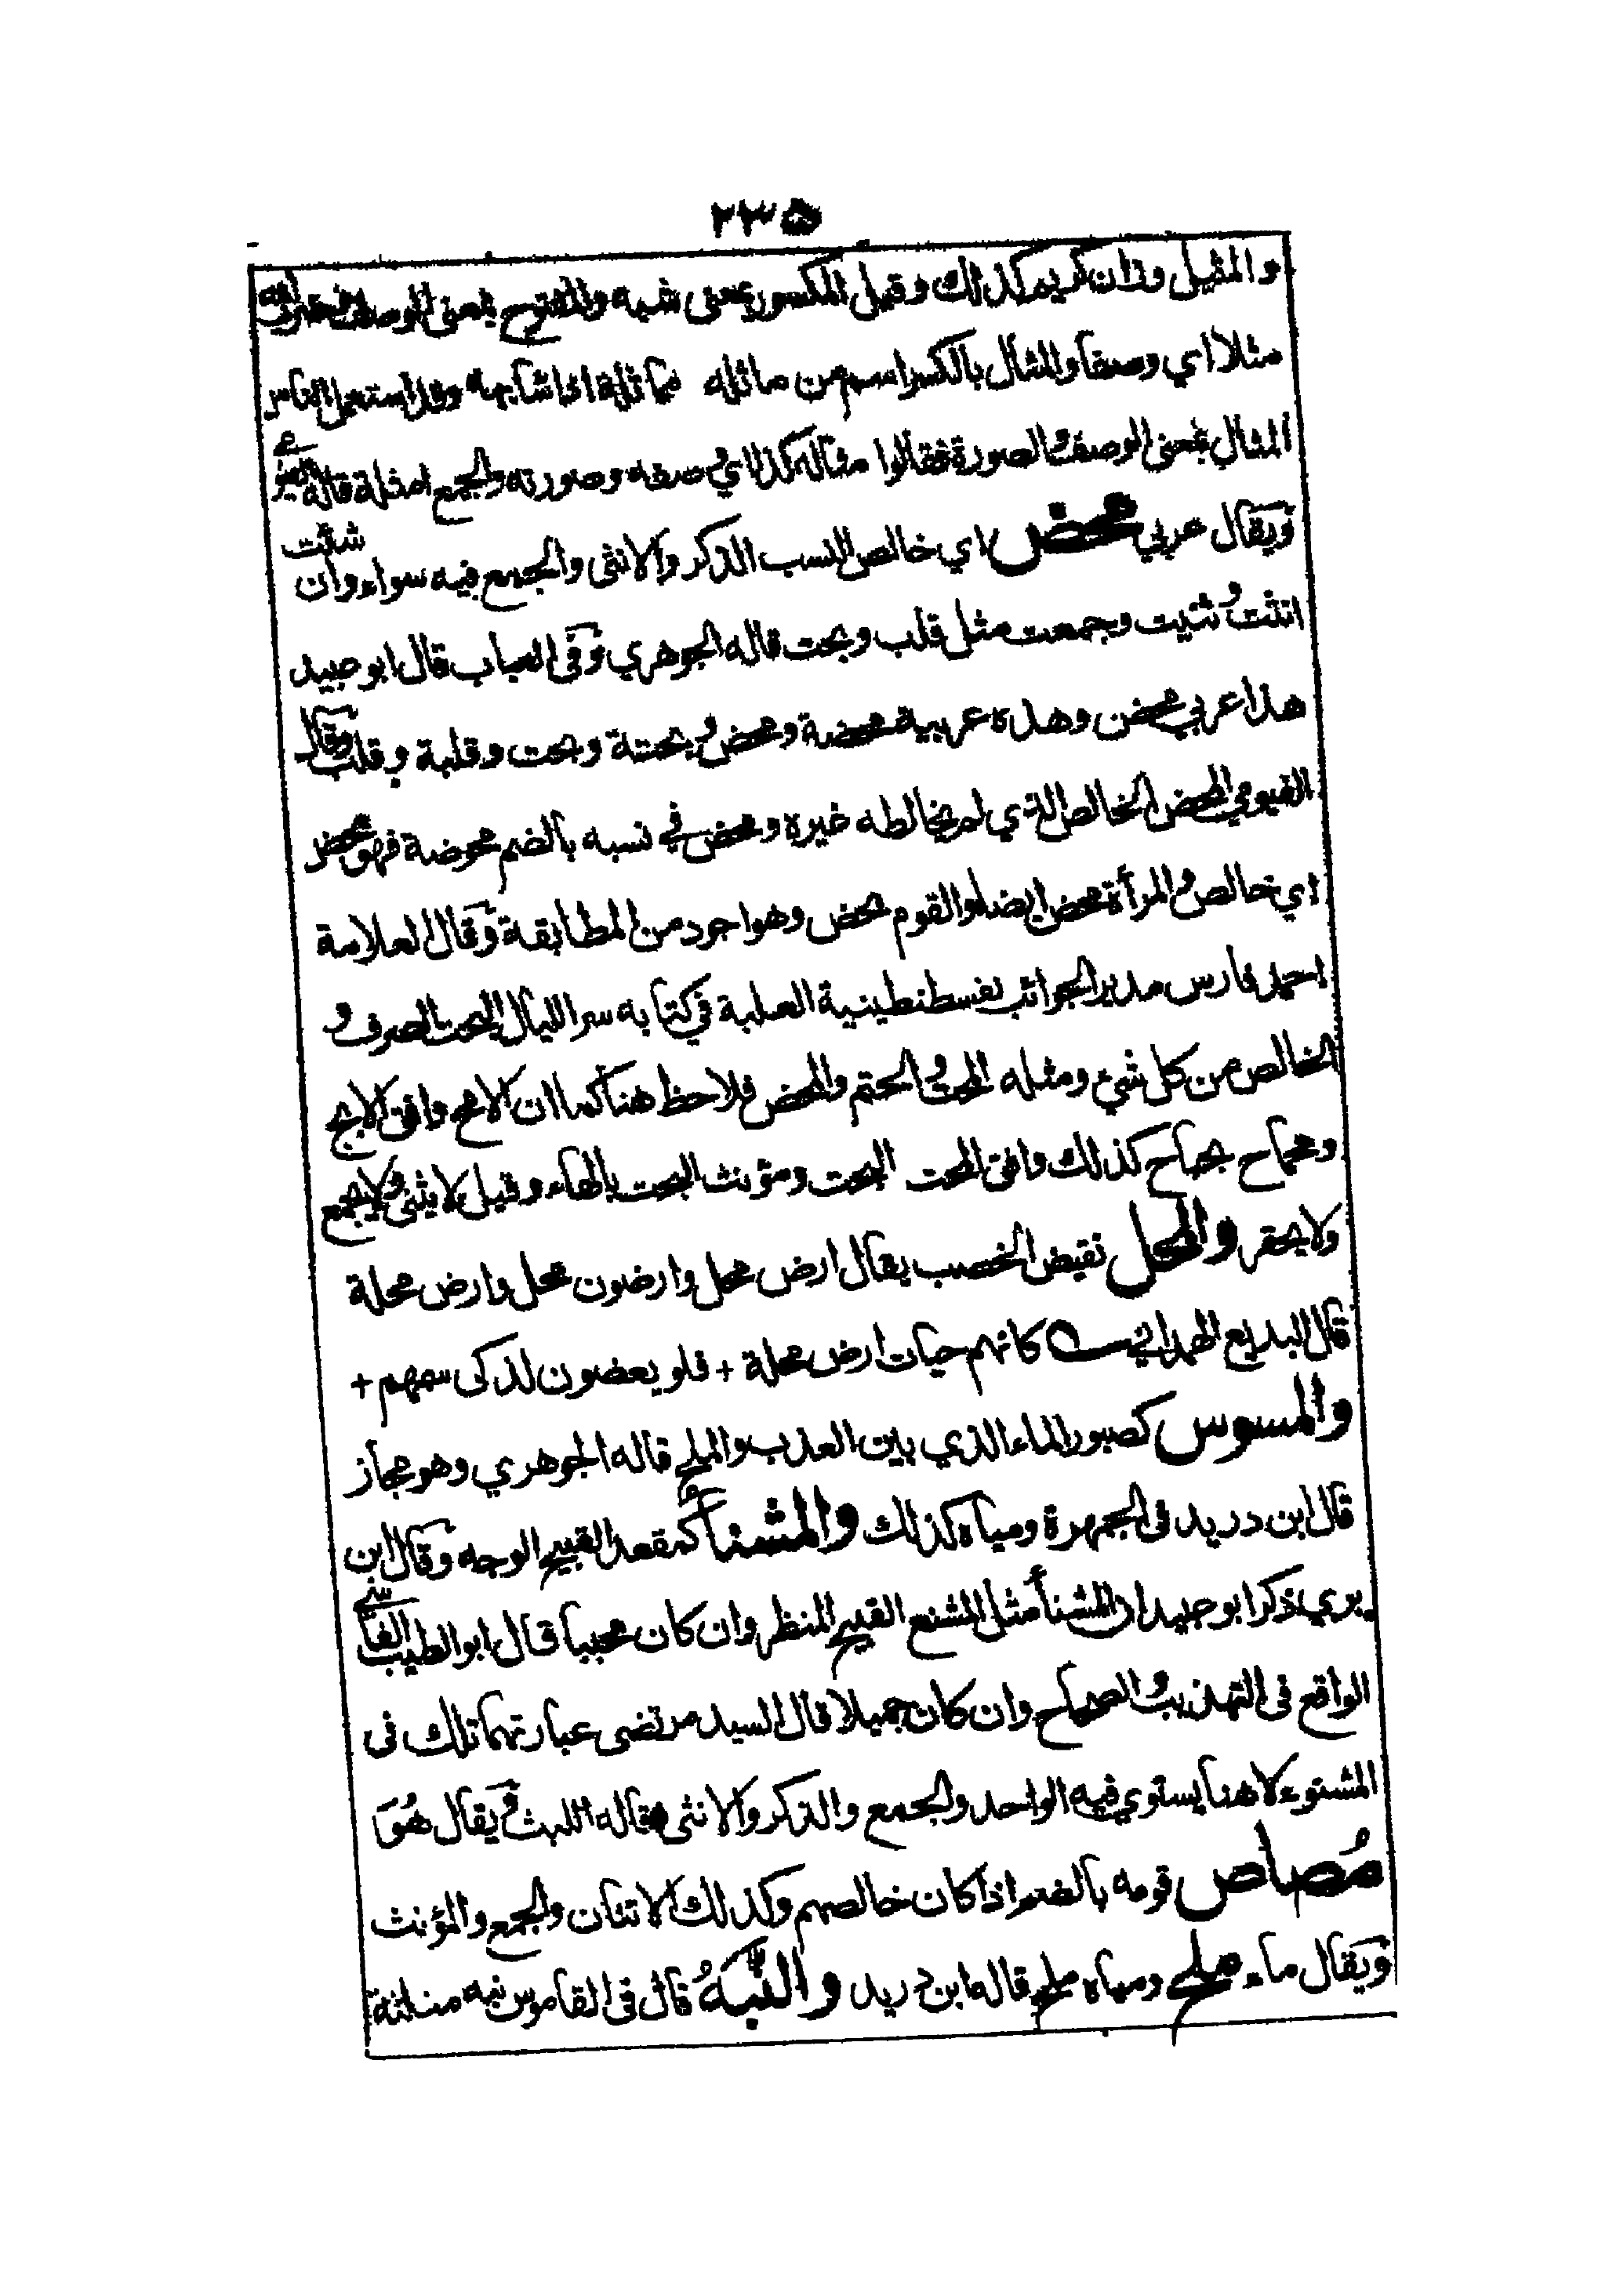 ٢٣٥
والمثيل وزان كريم كذلك وقيل المكسور بمعنى شبه والمفتوح بمعنى الوصف وضرب الله
مثلا اي وصفا والمثال بالكسر اسم من ماثله مماثلة اذا شابهه وقد استعمل الناس
المثال بمعنى الوصف والصورة فقالوا مثاله كذا اي صفه وصورته والجمع امثلة قاله الفيومي
ويقال عربي محض اي خالص النسب الذكر والانثى والجمع فيه سواء وان شئت
انثت وثنيت وجمعت مثل قلب وبحت قاله الجوهري وفى العباب قال ابو عبيد
هذا عربي محض وهذه عربية محضة ومحض وبحتة وبحت وقلبة وقلب وقال
الفيومي المحض الخالص الذي لم يخالطه غيره ومحض في نسبه بالضم محوضة فهو محض
اي خالص والمرأة محض ايضا والقوم محض وهو اجود من المطابقة وقال العلامة
احمد فارس مدير الجوائب بقسطنطينية العلية في كتابه سر الليال البحت الصرف و
الخالص من كل شيء ومثله المحت والحتم والمحض فلاحظ هنا كما ان الامح وافق الابح
ومحماح بحباح كذلك وافق المحت البحت ومؤنث البحت بالهاء وقيل لا يثنى ولا يجمع
ولا يحقر والمحل نقيض الخصب يقال ارض محل وارضون محل وارض محلة
قال البديع الهمداني كانهم حيات ارض محلة + فلو يعضون لذكى سمهم +
والمسوس كصبور الماء الذي بين العذب والملح قاله الجوهري وهو مجاز
قال ابن دريد فى الجمهرة ومياه كذلك والمشنأ كمقعد القبيح الوجه وقال ابن
بري ذكر ابو عبيد ان المشنأ مثل المشنع القبيح المنظر وان كان محببا قال ابو الطيب الفاسي
الواقع فى التهذيب والصحاح وان كان جميلا قال السيد مرتضى عبارتهما تلك فى
المشنوء لا هنا يستوي فيه الواحد والجمع والذكر والانثى قاله الليث ويقال هُوَ
مُصاص قومه بالضم اذا كان خالصهم وكذلك الاثنان والجمع والمؤنث
ويقال ماء ملح ومياه ملح قاله ابن دريد والنَّبَهُ قال فى القاموس نبه مثلثة